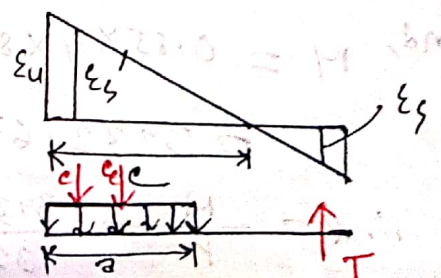 εu
εs
εs
c
c
c
a
T